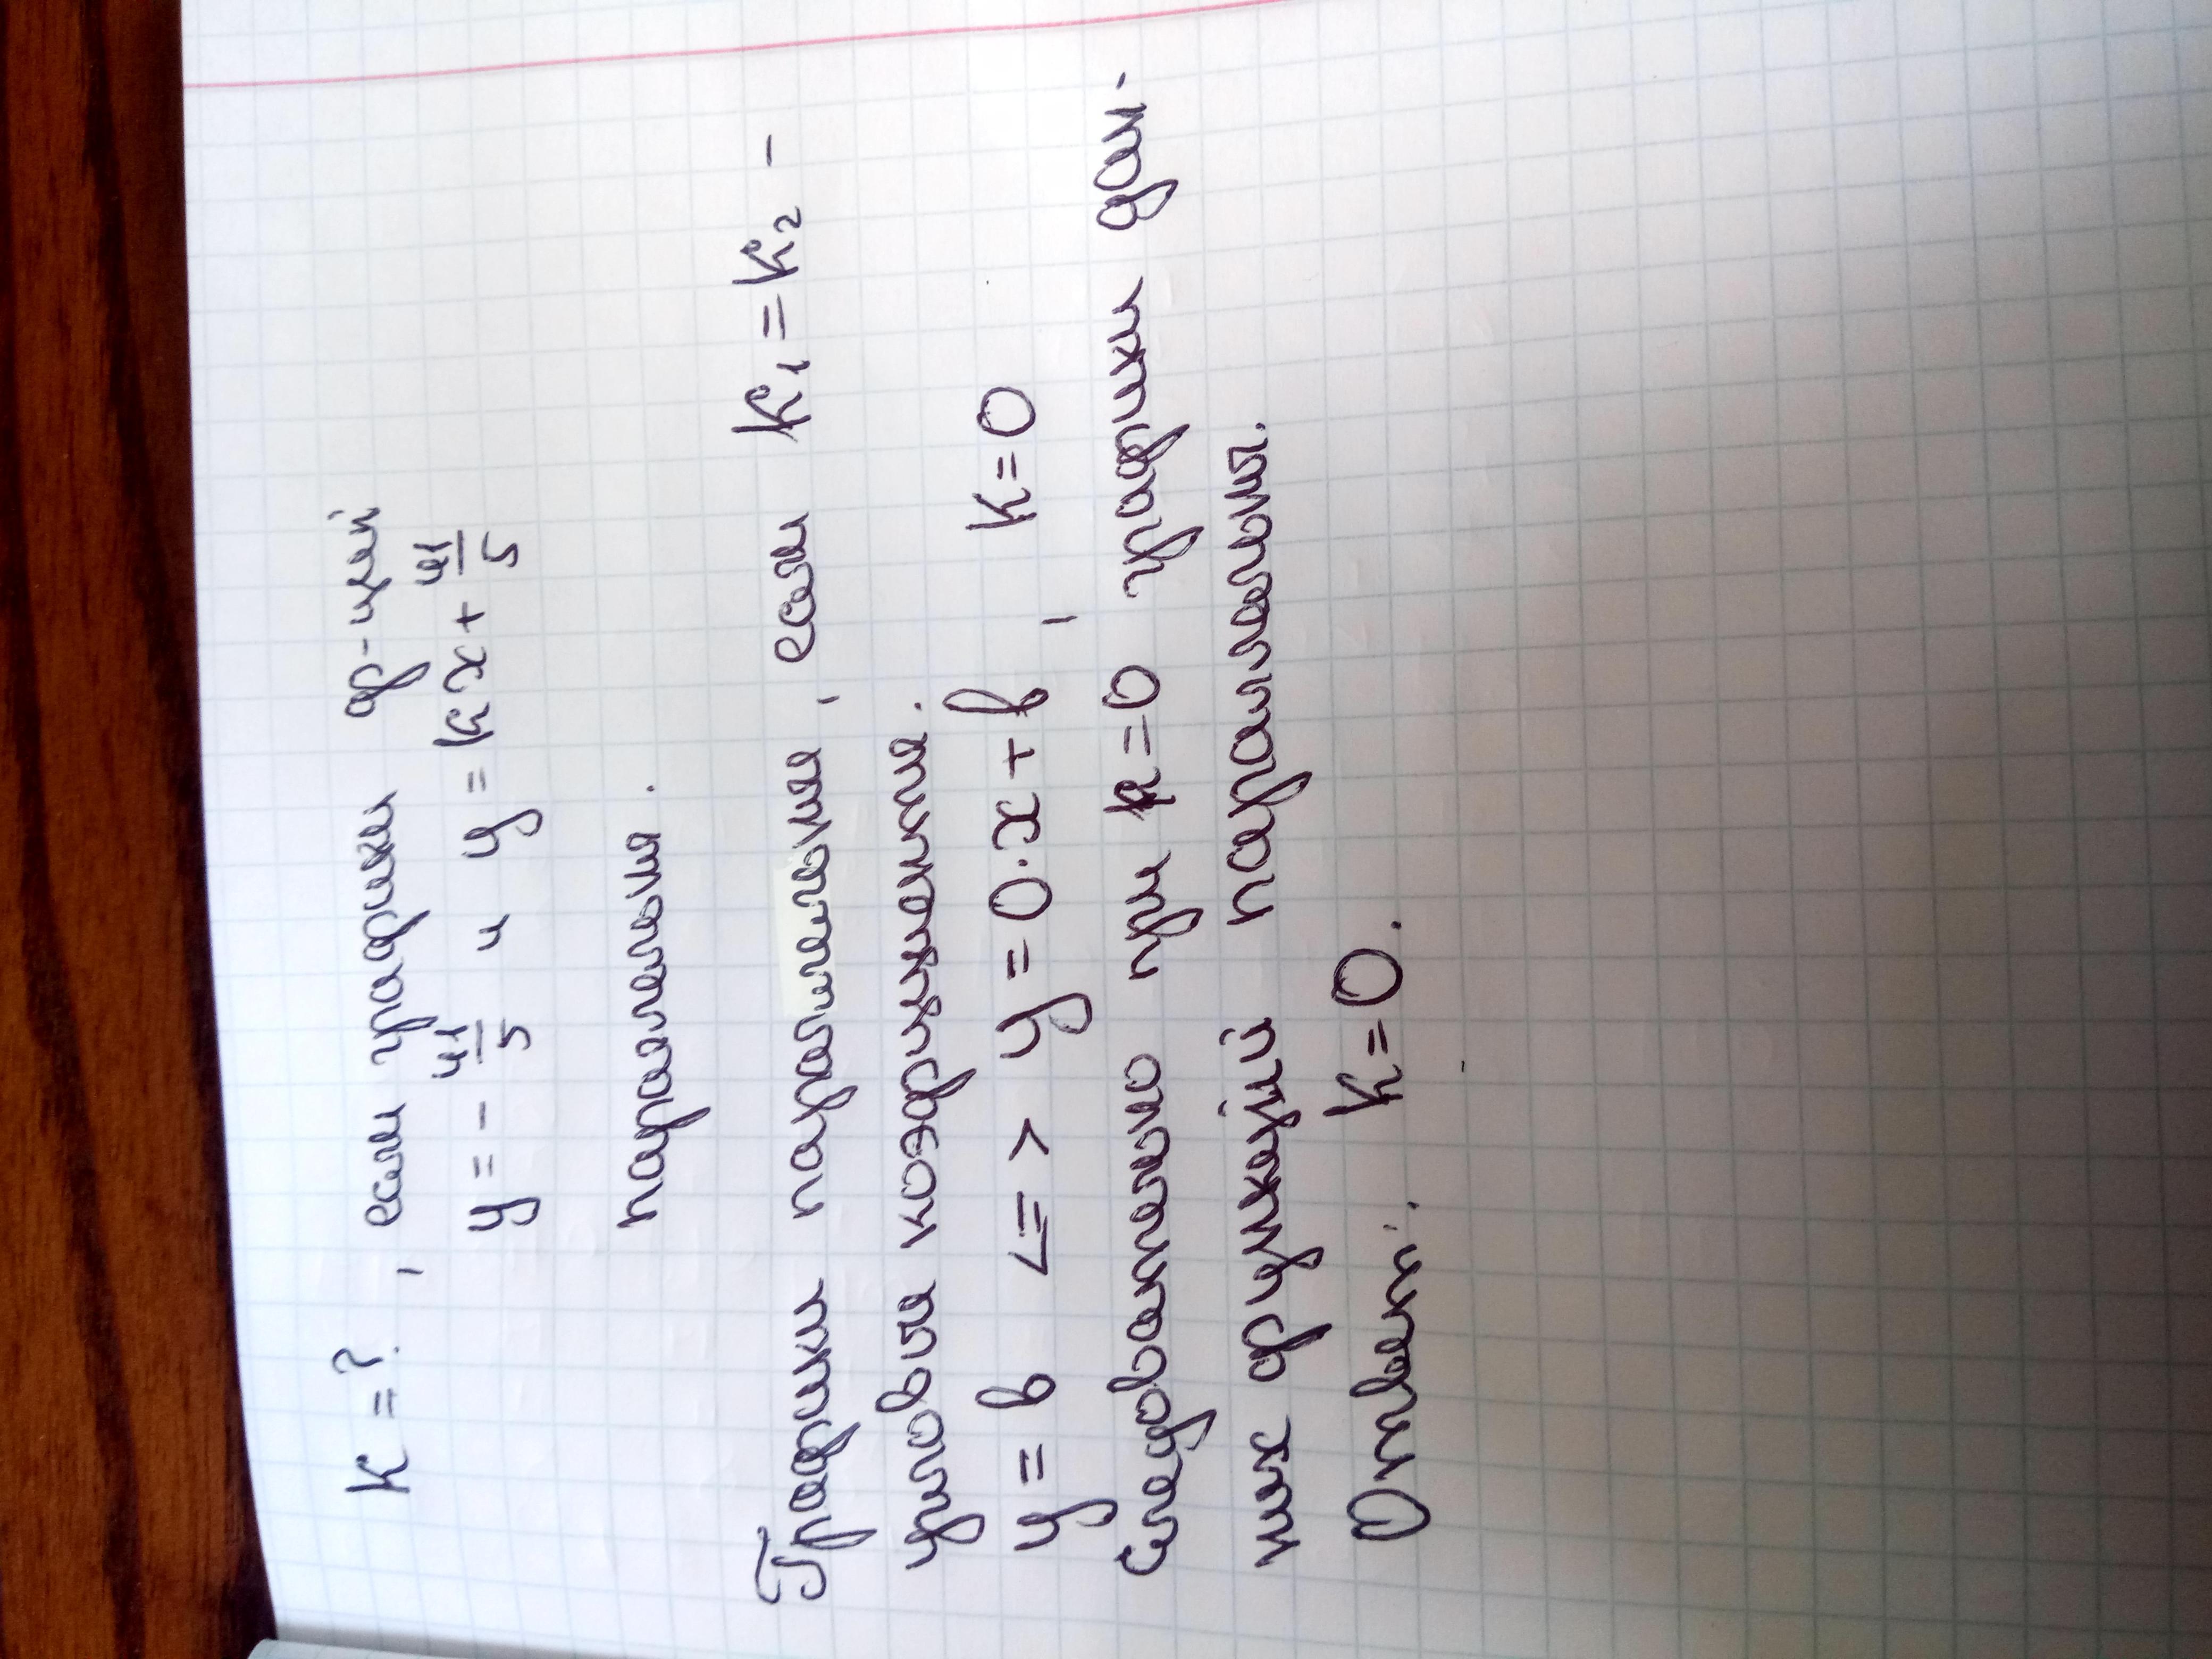 K = ? , если графики ф-ций
y = - 41/5 и y = kx + 41/5
параллельны.
Графики параллельны, если k₁ = k₂ -
угловые коэффициенты.
y = b <=> y = 0·x + b, k = 0
Следовательно при k = 0 графики дан-
ных функций параллельны.
Ответ: k = 0.